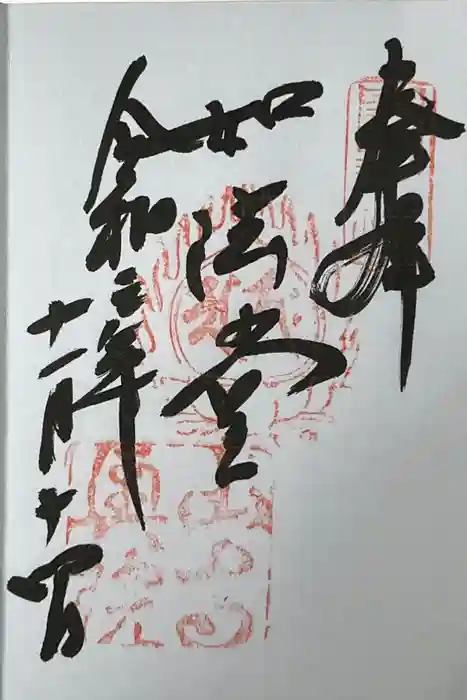 奉拝
如法堂
令和二年
十一月十四日